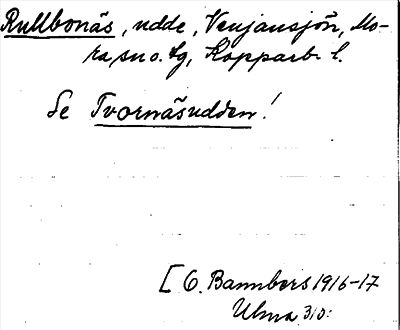 Rullbonäs, udde, Venjansjön, Mo-
ra, sn o. tg, Kopparb. l.
Se Tvornäsudden!
[O. Bannbers 1916-17
Ulma 310: